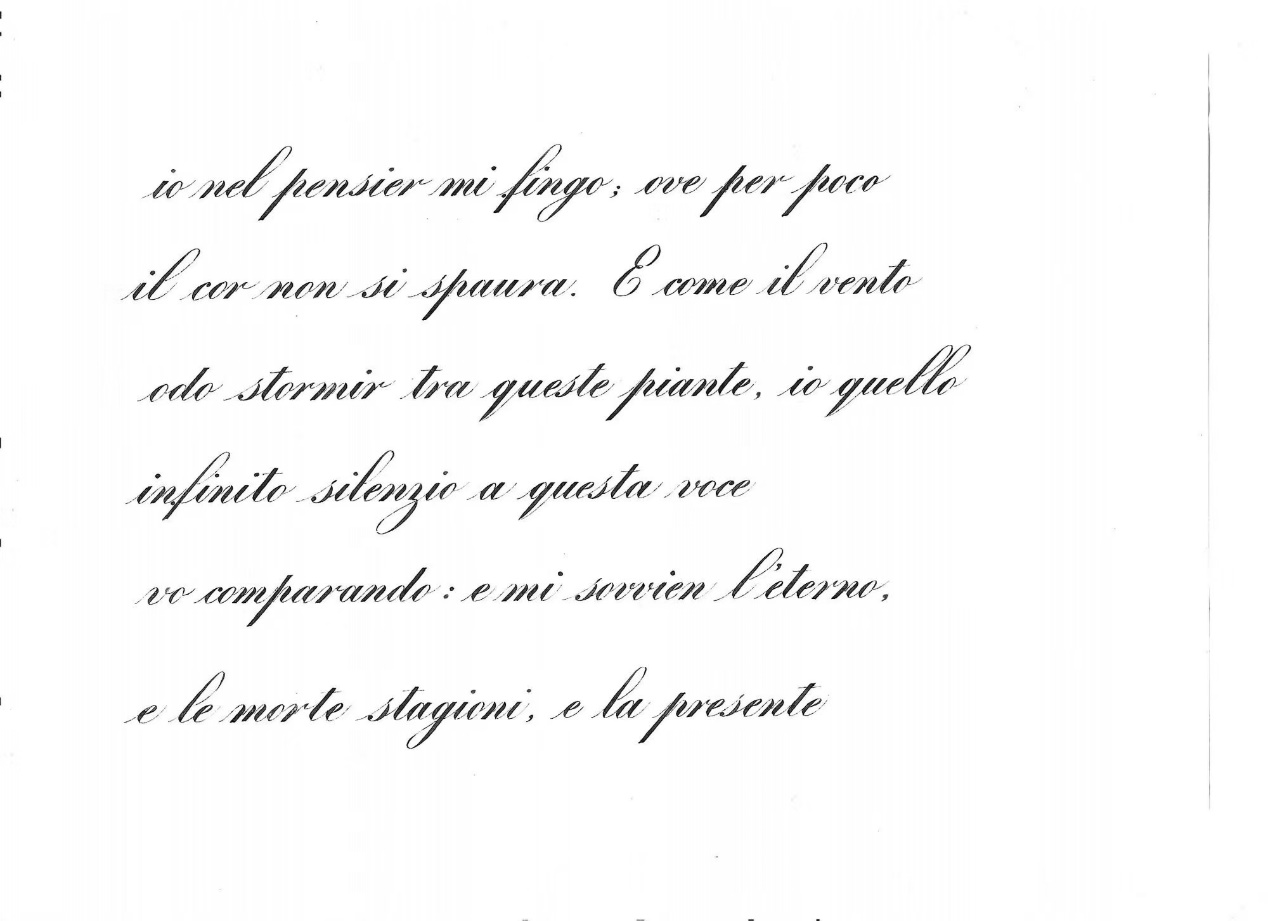 io nel pensier mi fingo; ove per poco
il cor non si spaura. E come il vento
odo stormir tra queste piante, io quello
infinito silenzio a questa voce
vo comparando: e mi sovvien l'eterno,
e le morte stagioni, e la presente